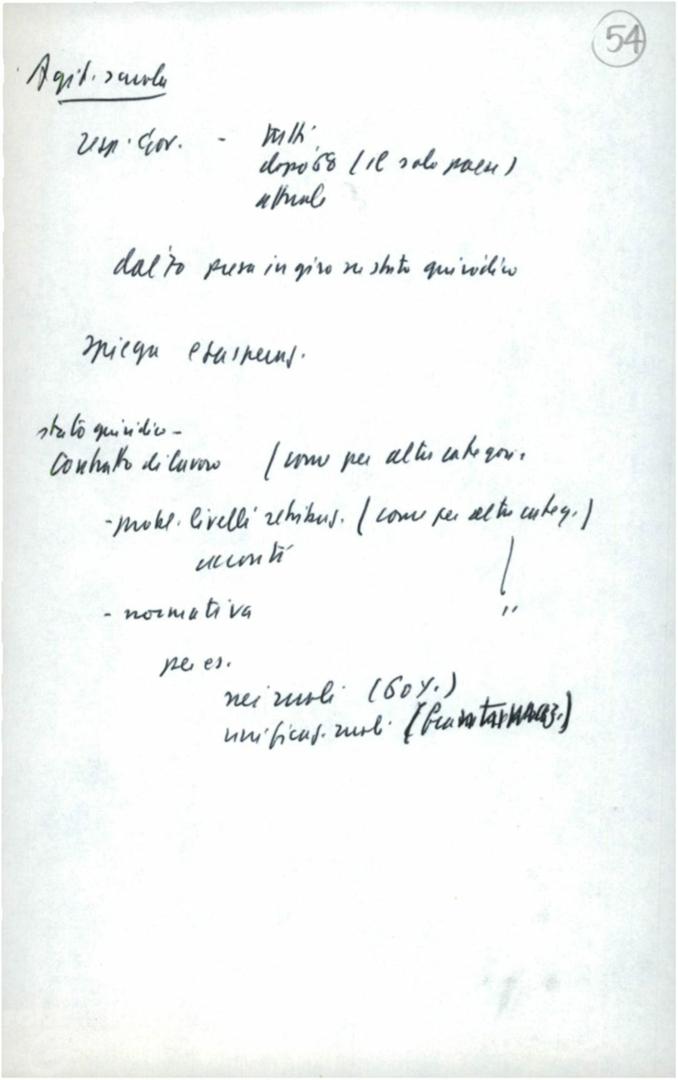 54
Agit. scuola
resp. Gov. - tutti
dopo '68 (il solo paese)
attuale
dal '70 presa in giro su stato giuridico
spiega esasperaz.
stato giuridico -
Contratto di lavoro (come per altre categori.
- probl. livelli retribuz. (come per altre categ.)
acconti
- normativa "
per es.
nei ruoli (60%)
unificaz. ruoli